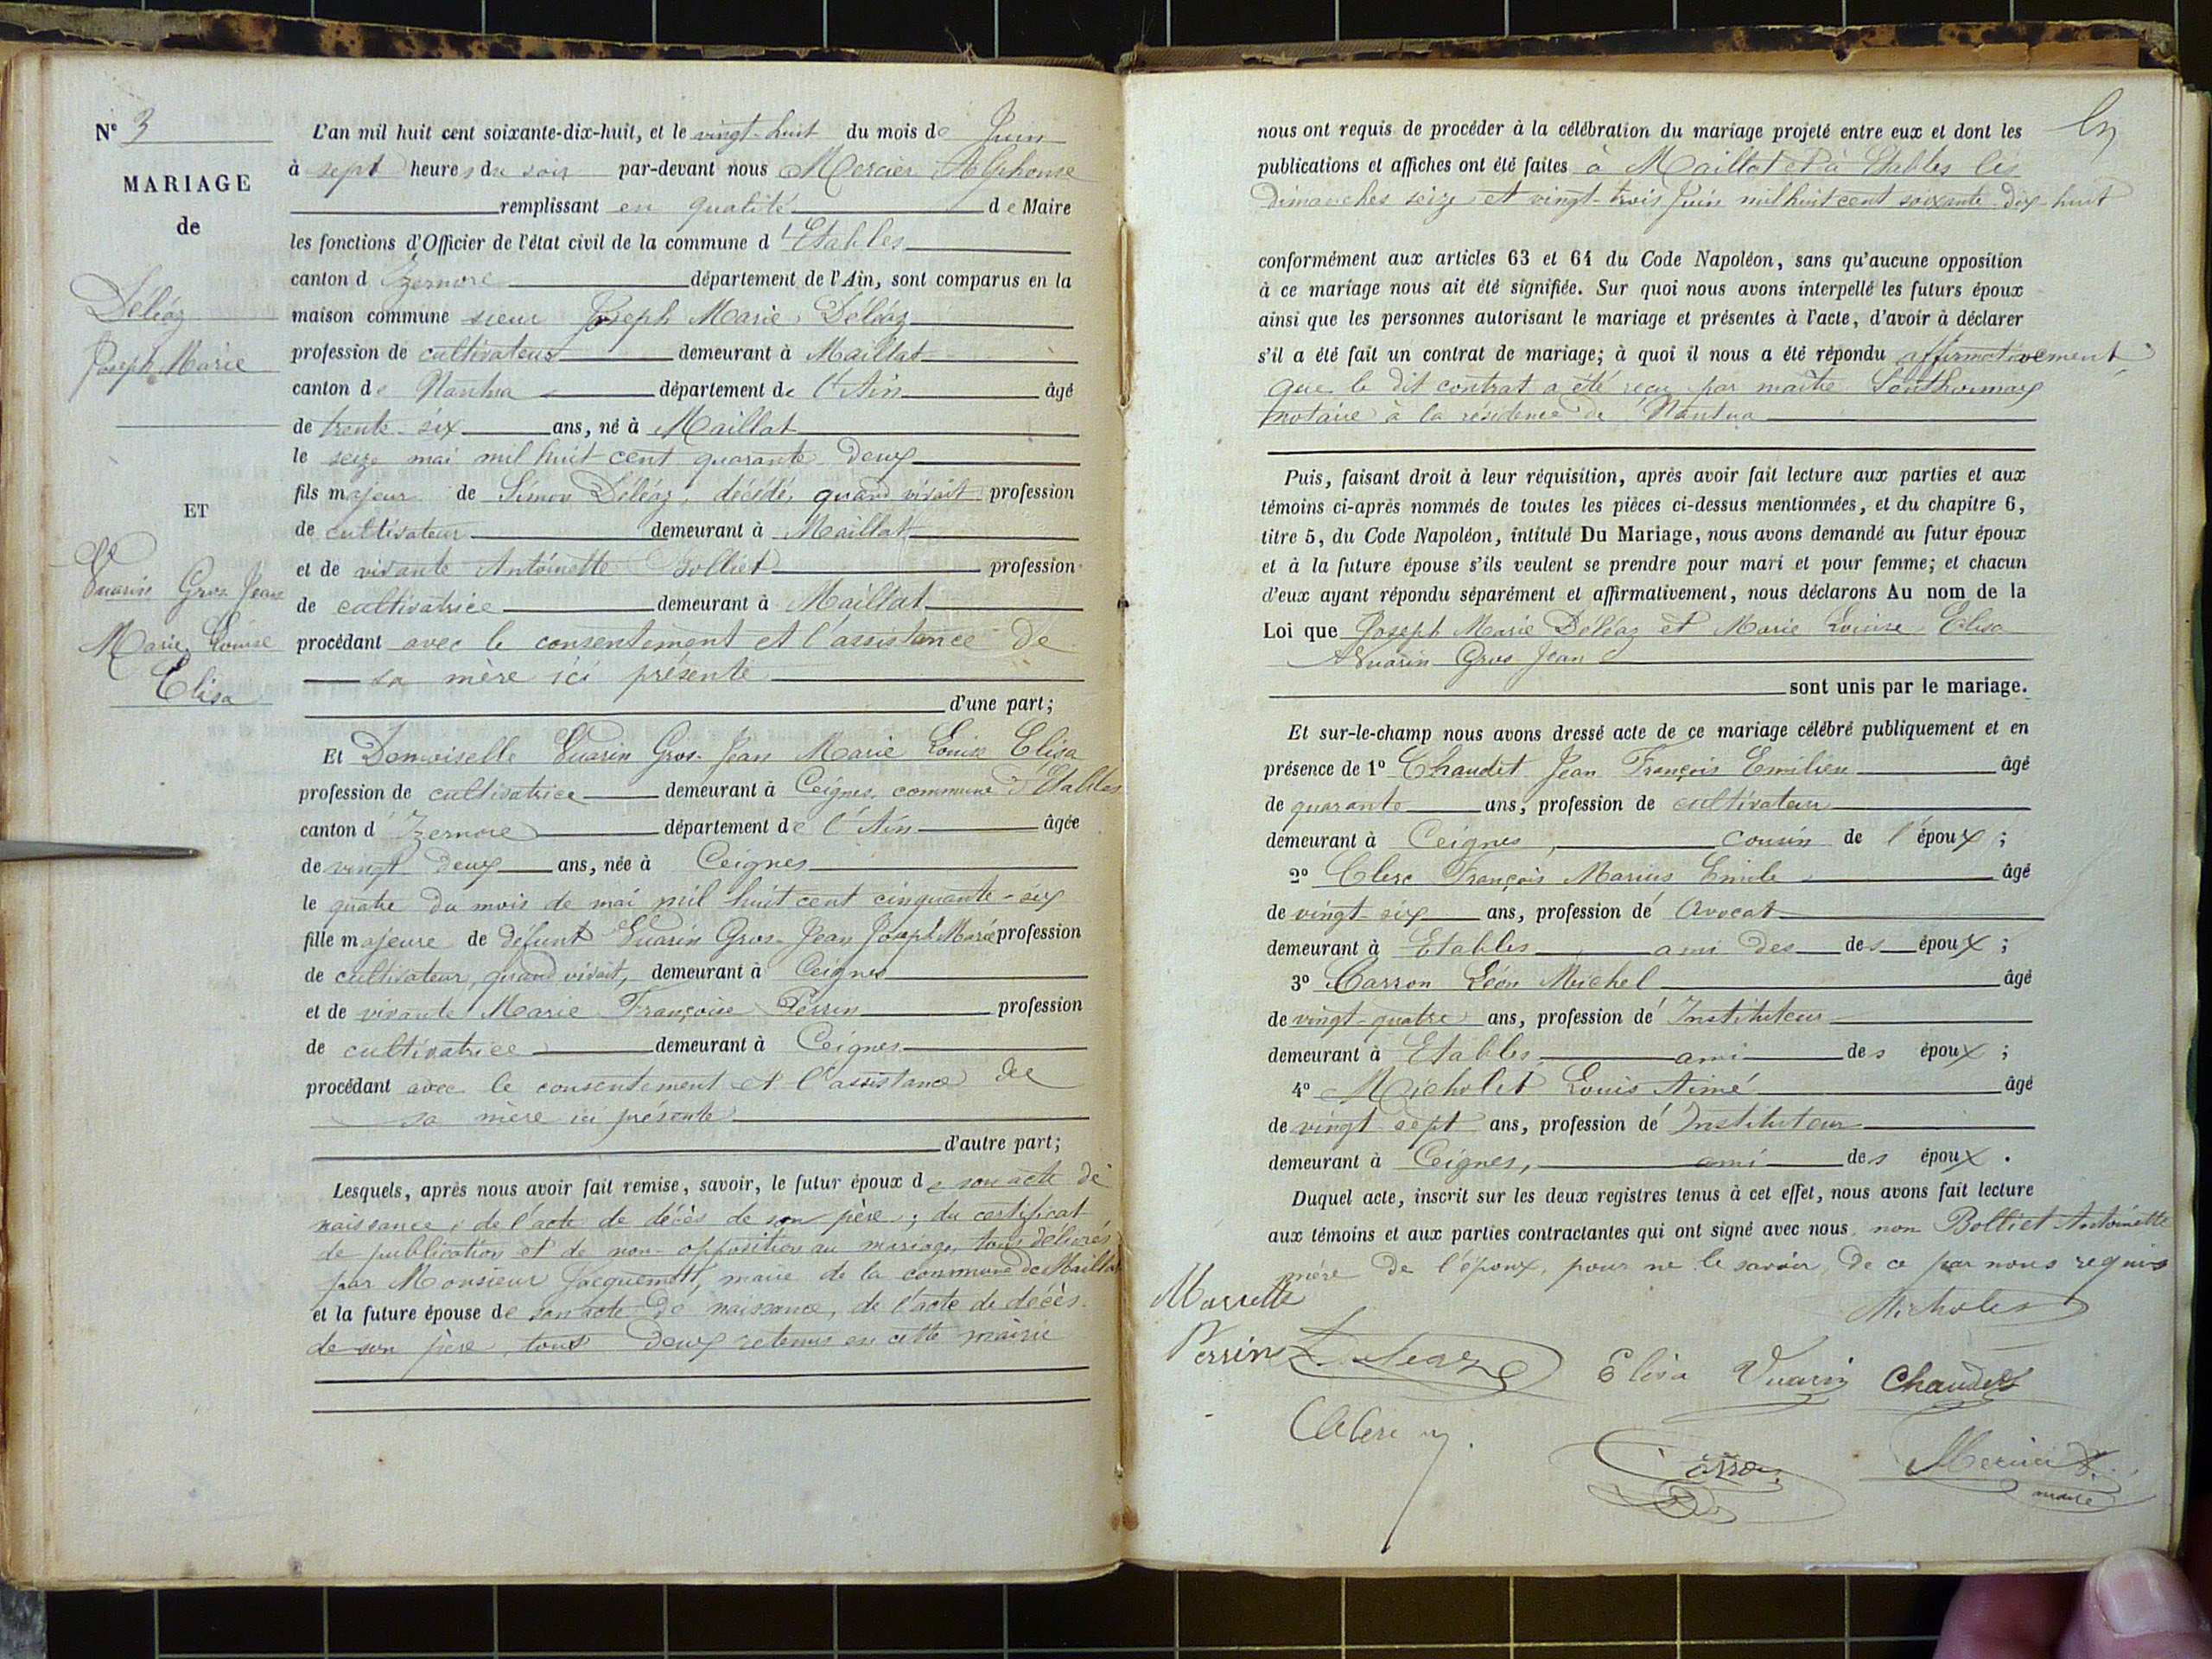 N° 3
MARIAGE
de
Déléaz
Joseph Marie
ET
Vuarin Gros Jean
Marie Louise
Elisa
L'an mil huit cent soixante-dix-huit, et le vingt-huit du mois de Juin
à sept heures du soir par-devant nous Mercier Alphonse
remplissant en qualité de Maire
les fonctions d'Officier de l'état civil de la commune d'Etables
canton d'Izernore département de l'Ain, sont comparus en la
maison commune sieur Joseph Marie Déléaz
profession de cultivateur demeurant à Maillat
canton de Nantua département de l'Ain âgé
de trente-six ans, né à Maillat
le seize mai mil huit cent quarante-deux
fils majeur de Simon Déléaz, décédé, quand vivait profession
de cultivateur demeurant à Maillat
et de vivante Antoinette Bolliet profession
de cultivatrice demeurant à Maillat
procédant avec le consentement et l'assistance de
sa mère ici présente
d'une part;
Et Demoiselle Vuarin Gros-Jean Marie Louise Elisa
profession de cultivatrice demeurant à Ceignes, commune d'Etables
canton d'Izernore département de l'Ain âgée
de vingt-deux ans, née à Ceignes
le quatre du mois de mai mil huit cent cinquante-six
fille majeure de défunt Vuarin Gros-Jean Joseph Marie profession
de cultivateur, quand vivait, demeurant à Ceignes
et de vivante Marie Françoise Perrin profession
de cultivatrice demeurant à Ceignes
procédant avec le consentement et l'assistance de
sa mère ici présente
d'autre part;
Lesquels, après nous avoir fait remise, savoir, le futur époux de son acte de
naissance, de l'acte de décès de son père; du certificat
de publication et de non-opposition au mariage, tous délivrés
par Monsieur Jacquemet, maire de la commune de Maillat
et la future épouse de son acte de naissance, de l'acte de décès
de son père, tous deux retenus en cette mairie
nous ont requis de procéder à la célébration du mariage projeté entre eux et dont les
publications et affiches ont été faites à Maillat et à Etables les
dimanches seize et vingt-trois Juin mil huit cent soixante-dix-huit
conformément aux articles 63 et 64 du Code Napoléon, sans qu'aucune opposition
à ce mariage nous ait été signifiée. Sur quoi nous avons interpellé les futurs époux
ainsi que les personnes autorisant le mariage et présentes à l'acte, d'avoir à déclarer
s'il a été fait un contrat de mariage; à quoi il nous a été répondu affirmativement
que le dit contrat a été reçu par maître
notaire à la résidence de Nantua
Puis, faisant droit à leur réquisition, après avoir fait lecture aux parties et aux
témoins ci-après nommés de toutes les pièces ci-dessus mentionnées, et du chapitre 6,
titre 5, du Code Napoléon, intitulé Du Mariage, nous avons demandé au futur époux
et à la future épouse s'ils veulent se prendre pour mari et pour femme; et chacun
d'eux ayant répondu séparément et affirmativement, nous déclarons Au nom de la
Loi que Joseph Marie Déléaz et Marie Louise Elisa
Vuarin Gros Jean
sont unis par le mariage.
Et sur-le-champ nous avons dressé acte de ce mariage célébré publiquement et en
présence de 1° Chaudet Jean François Emilien âgé
de quarante ans, profession de cultivateur
demeurant à Ceignes, cousin de l'époux;
2° Clerc François Marius Emile âgé
de vingt-six ans, profession de Avocat
demeurant à Etables ami des des époux;
3° Carron Léon Michel âgé
de vingt-quatre ans, profession de Instituteur
demeurant à Etables, ami des époux;
4° Micholet Louis Aimé âgé
de vingt-sept ans, profession de Instituteur
demeurant à Ceignes, ami des époux.
Duquel acte, inscrit sur les deux registres tenus à cet effet, nous avons fait lecture
aux témoins et aux parties contractantes qui ont signé avec nous non Bolliet Antoinette
mère de l'époux, pour ne le savoir, de ce par nous requis
Micholet
Perrin
Déléaz
Elisa Vuarin
Chaudet
Clerc
Carron
Mercier A.
maire